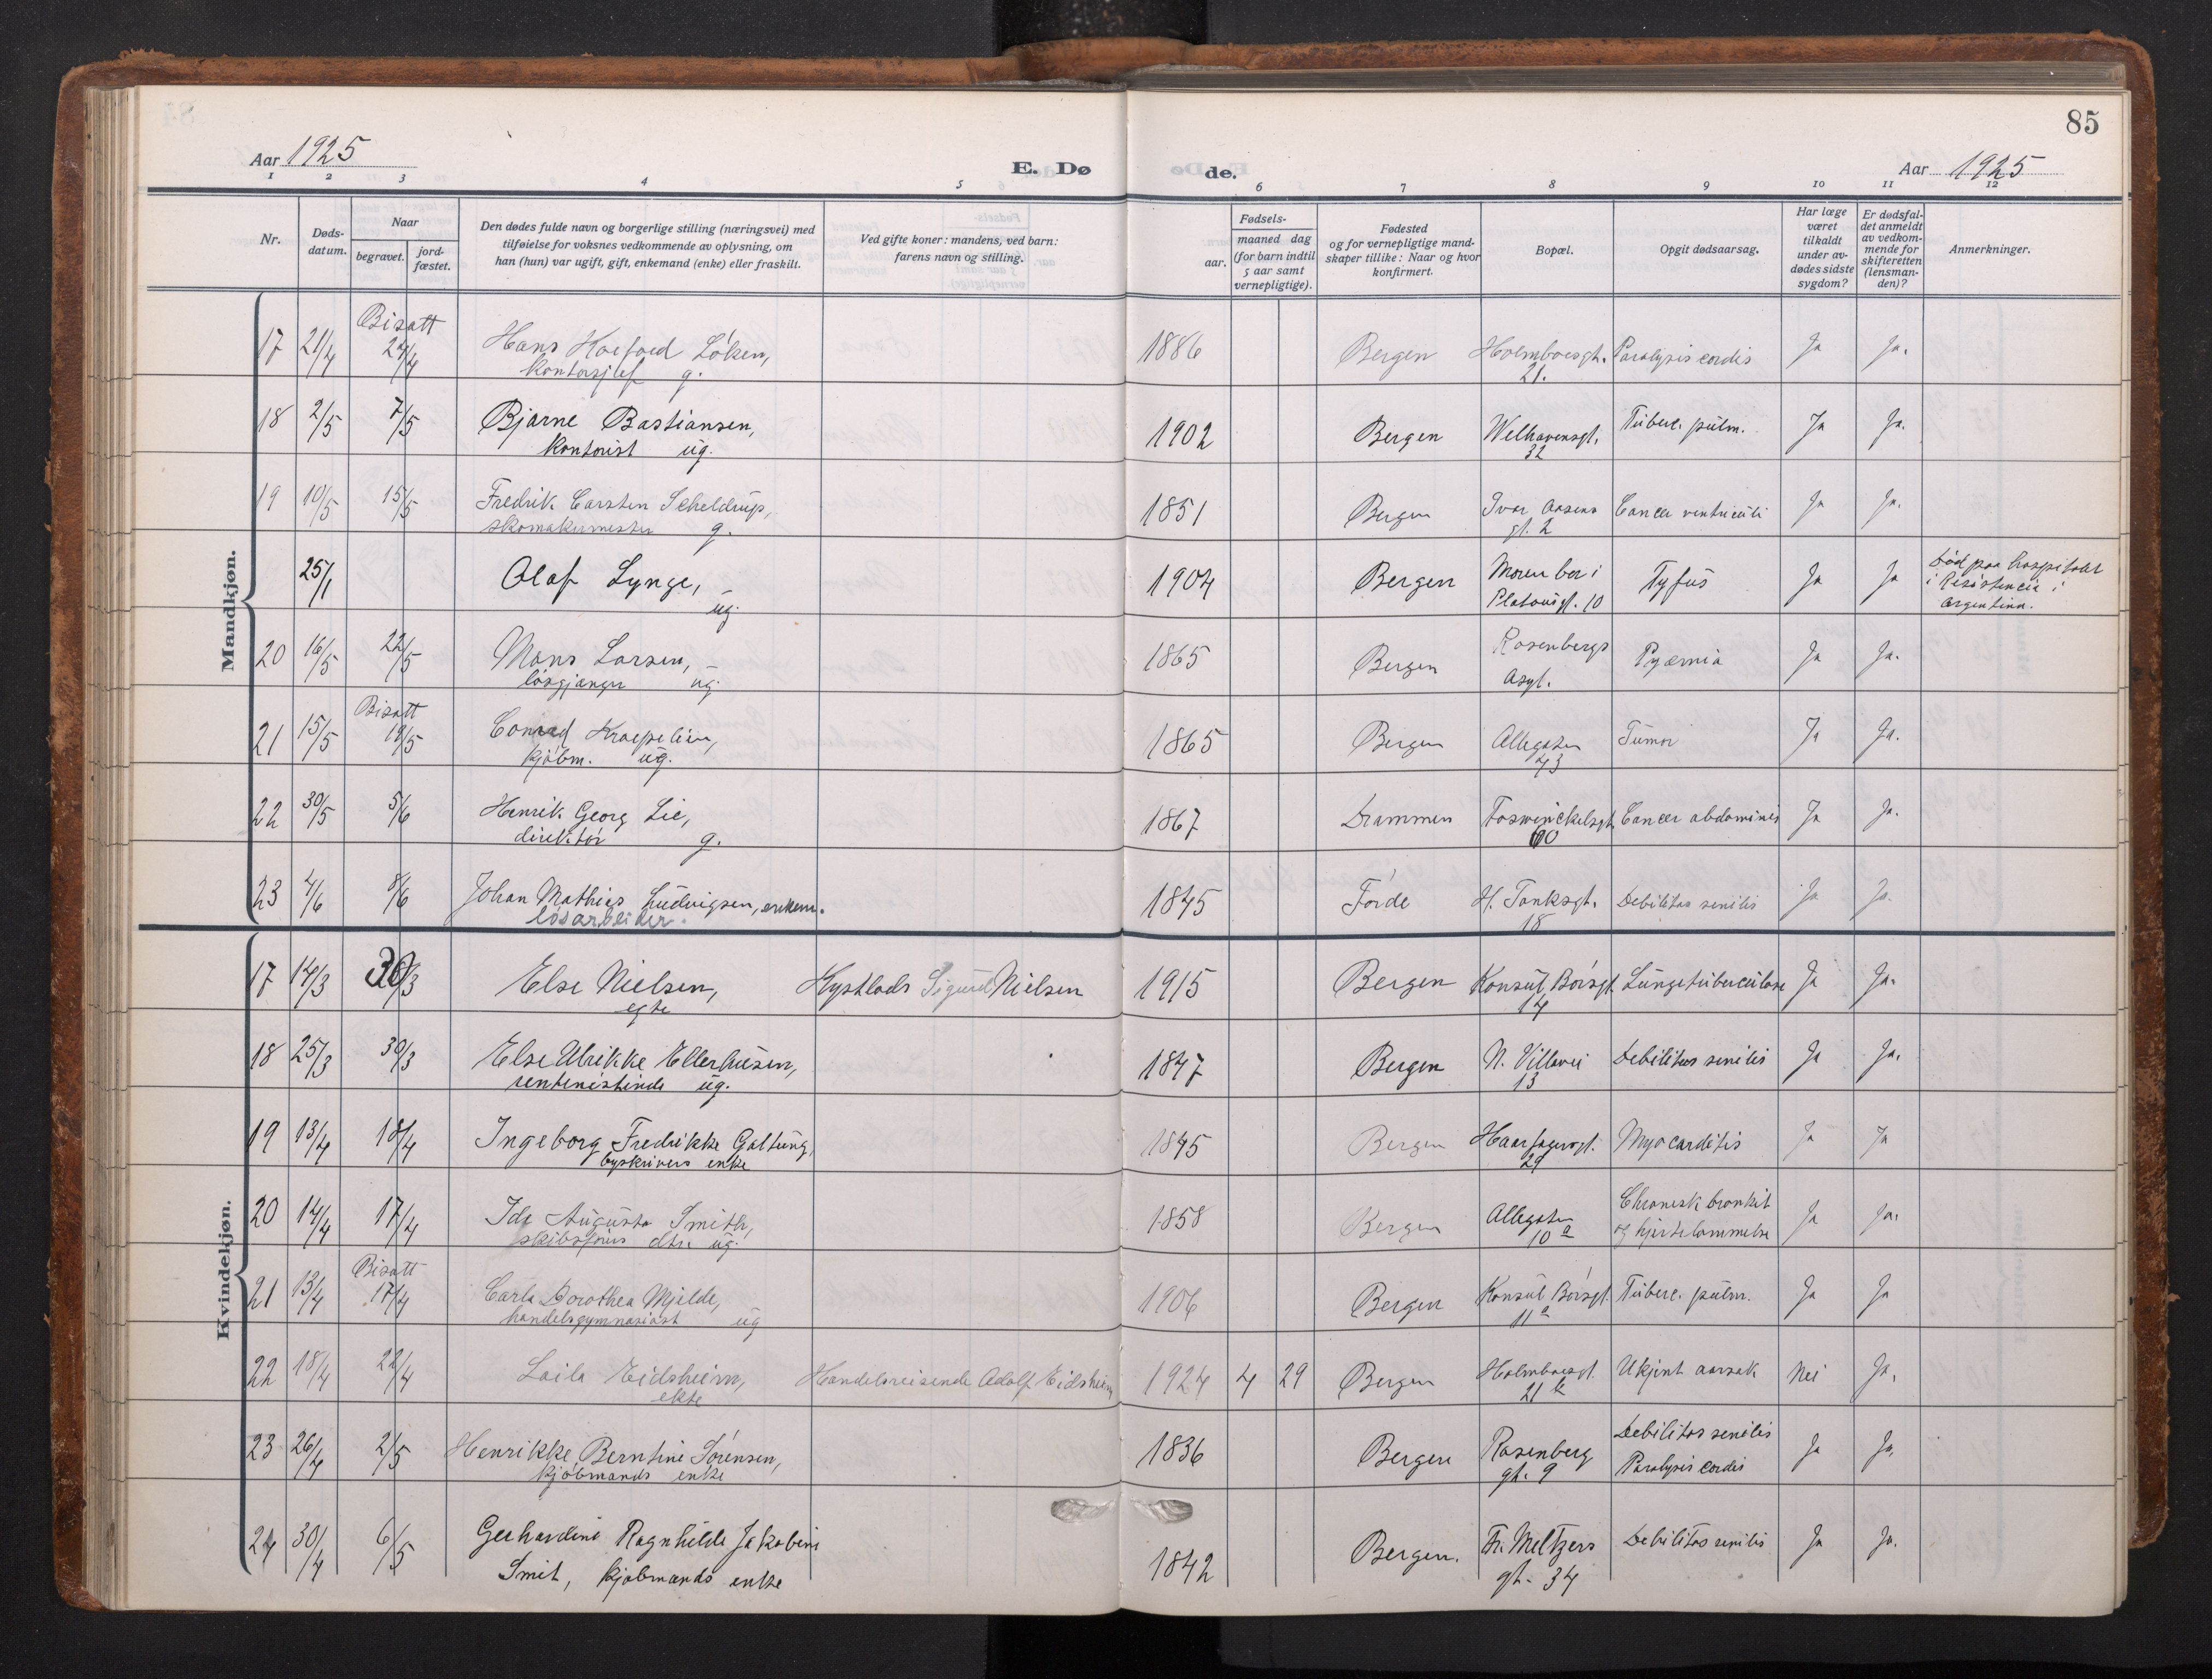 85
Aar 1925
E. Dø
de.
Aar 1925
1 2 3 4 5 6 7 8 9 10 11 12
Nr.
Døds-
datum.
Naar
begravet.
jord-
fæstet.
Den dødes fulde navn og borgerlige stilling (næringsvei) med
tilføielse for voksnes vedkommende av oplysning, om
han (hun) var ugift, gift, enkemand (enke) eller fraskilt.
Ved gifte koner: mandens, ved barn:
farens navn og stilling.
Fødsels-
aar.
maaned dag
(for barn indtil
5 aar samt
vernepligtige).
Fødested
og for vernepligtige mand-
skaper tillike: Naar og hvor
konfirmert.
Bopæl.
Opgit dødsaarsag.
Har læge
været
tilkaldt
under av-
dødes sidste
sygdom?
Er dødsfal-
det anmeldt
av vedkom-
mende for
skifteretten
(lensman-
den)?
Anmerkninger.
Mandkjøn.
Bisatt
17 21/4 24/4 Hans Koefoed Løken, 1886 Bergen Holmboesgt. Paralysis cordis Ja Ja.
kontorsjef g. 21.
18 2/5 7/5 Bjarne Bastiansen, 1902 Bergen Welhavensgt. Tuberc. pulm. Ja Ja.
kontorist ug. 32
19 10/5 15/5 Fredrik Carsten Scheldrup, 1851 Bergen Ivar Aasens Cancer ventriculi Ja Ja.
skomakermester g. gt. 2
25/1 Olaf Lynge, 1904 Bergen Moren bor i Tyfus Ja Ja Død paa hospitalet
ug. Platousgt. 10 i Resistencia i
Argentina.
20 16/5 22/5 Mons Larsen, 1865 Bergen Rosenbergs Pyæmia Ja Ja.
løsgjænger ug. Asyl.
Bisatt
21 15/5 19/5 Conrad Kraepelien, 1865 Bergen Allegaten Tumor Ja Ja.
kjøbm. ug. 43
22 30/5 5/6 Henrik Georg Lie, 1867 Drammen Foswinckelsgt. Cancer abdominis Ja Ja.
direktør g. 60
23 4/6 8/6 Johan Mathias Ludvigsen, enkem. 1845 Førde H. Tanksgt. Debilitas senilis Ja Ja.
løsarbeider. 18
Kvindekjøn.
17 14/3 20/3 Else Nielsen, Kystlods Sigurd Nielsen 1915 Bergen Konsul Børsgt. Lungetuberculose Ja Ja.
egte 14
18 25/3 30/3 Else Ulrikke Ellerhusen, 1847 Bergen N. Villavei Debilitas senilis Ja Ja.
rentenistinde ug. 13
19 13/4 18/4 Ingeborg Fredrikke Galtung, 1845 Bergen Haarfagersgt. Myocarditis Ja Ja
byskrivers enke 29
20 14/4 17/4 Ida Augusta Smith, 1858 Bergen Allegaten Chronisk bronkit Ja Ja.
skibsførers dtr. ug. 10 a og hjertelammelse
Bisatt
21 13/4 17/4 Carla Dorothea Mjelde, 1906 Bergen Konsul Børsgt. Tuberc. pulm. Ja Ja
handelsgymnasiast ug 11 a
22 18/4 22/4 Laila Eidsheim, Handelsreisende Adolf Eidsheim 1924 4 29 Bergen Holmboesgt. Ukjent aarsak Nei Ja.
ekte 21 b
23 26/4 2/5 Henrikke Berntine Sørensen, 1836 Bergen Rosenberg Debilitas senilis Ja Ja.
kjøbmands enke gt. 9 Paralysis cordis
24 30/4 6/5 Gerhardine Ragnhilde Jakobine 1842 Bergen. Fr. Meltzers Debilitas senilis Ja Ja.
Smit, kjøbmands enke gt. 34